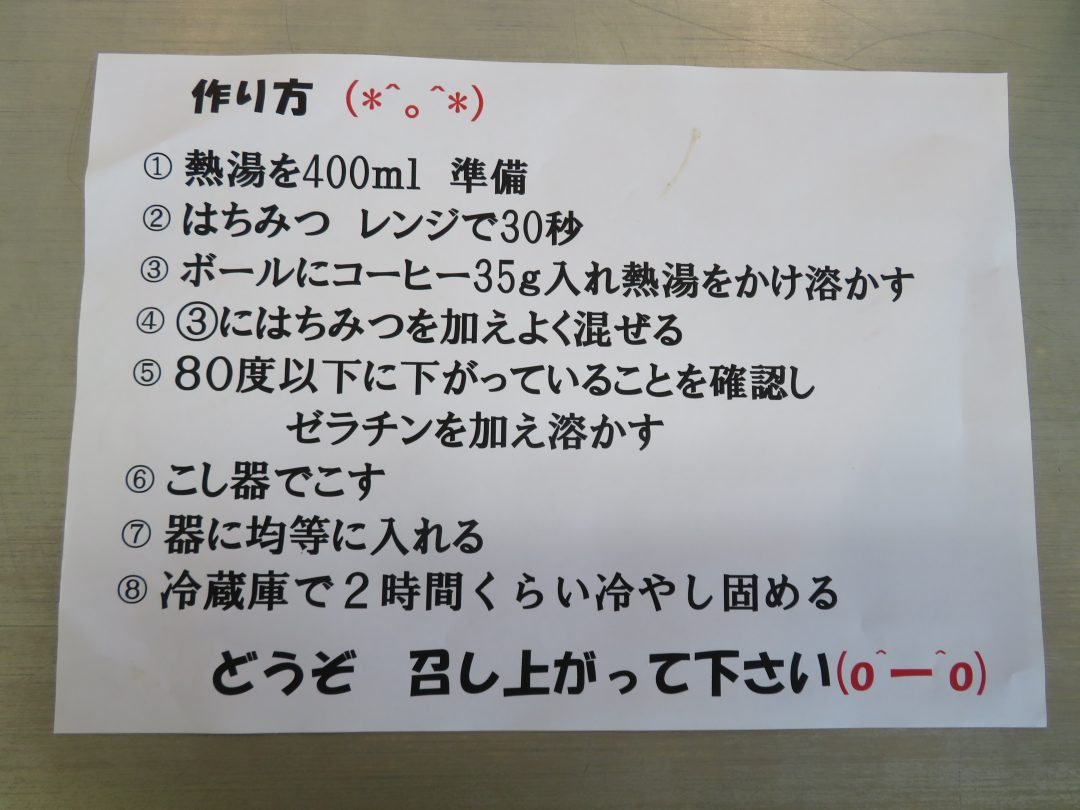 作り方 (*^。^*)
① 熱湯を400ml 準備
② はちみつ レンジで30秒
③ ボールにコーヒー35g入れ熱湯をかけ溶かす
④ ③にはちみつを加えよく混ぜる
⑤ 80度以下に下がっていることを確認し
ゼラチンを加え溶かす
⑥ こし器でこす
⑦ 器に均等に入れる
⑧ 冷蔵庫で2時間くらい冷やし固める
どうぞ 召し上がって下さい(o^ー^o)